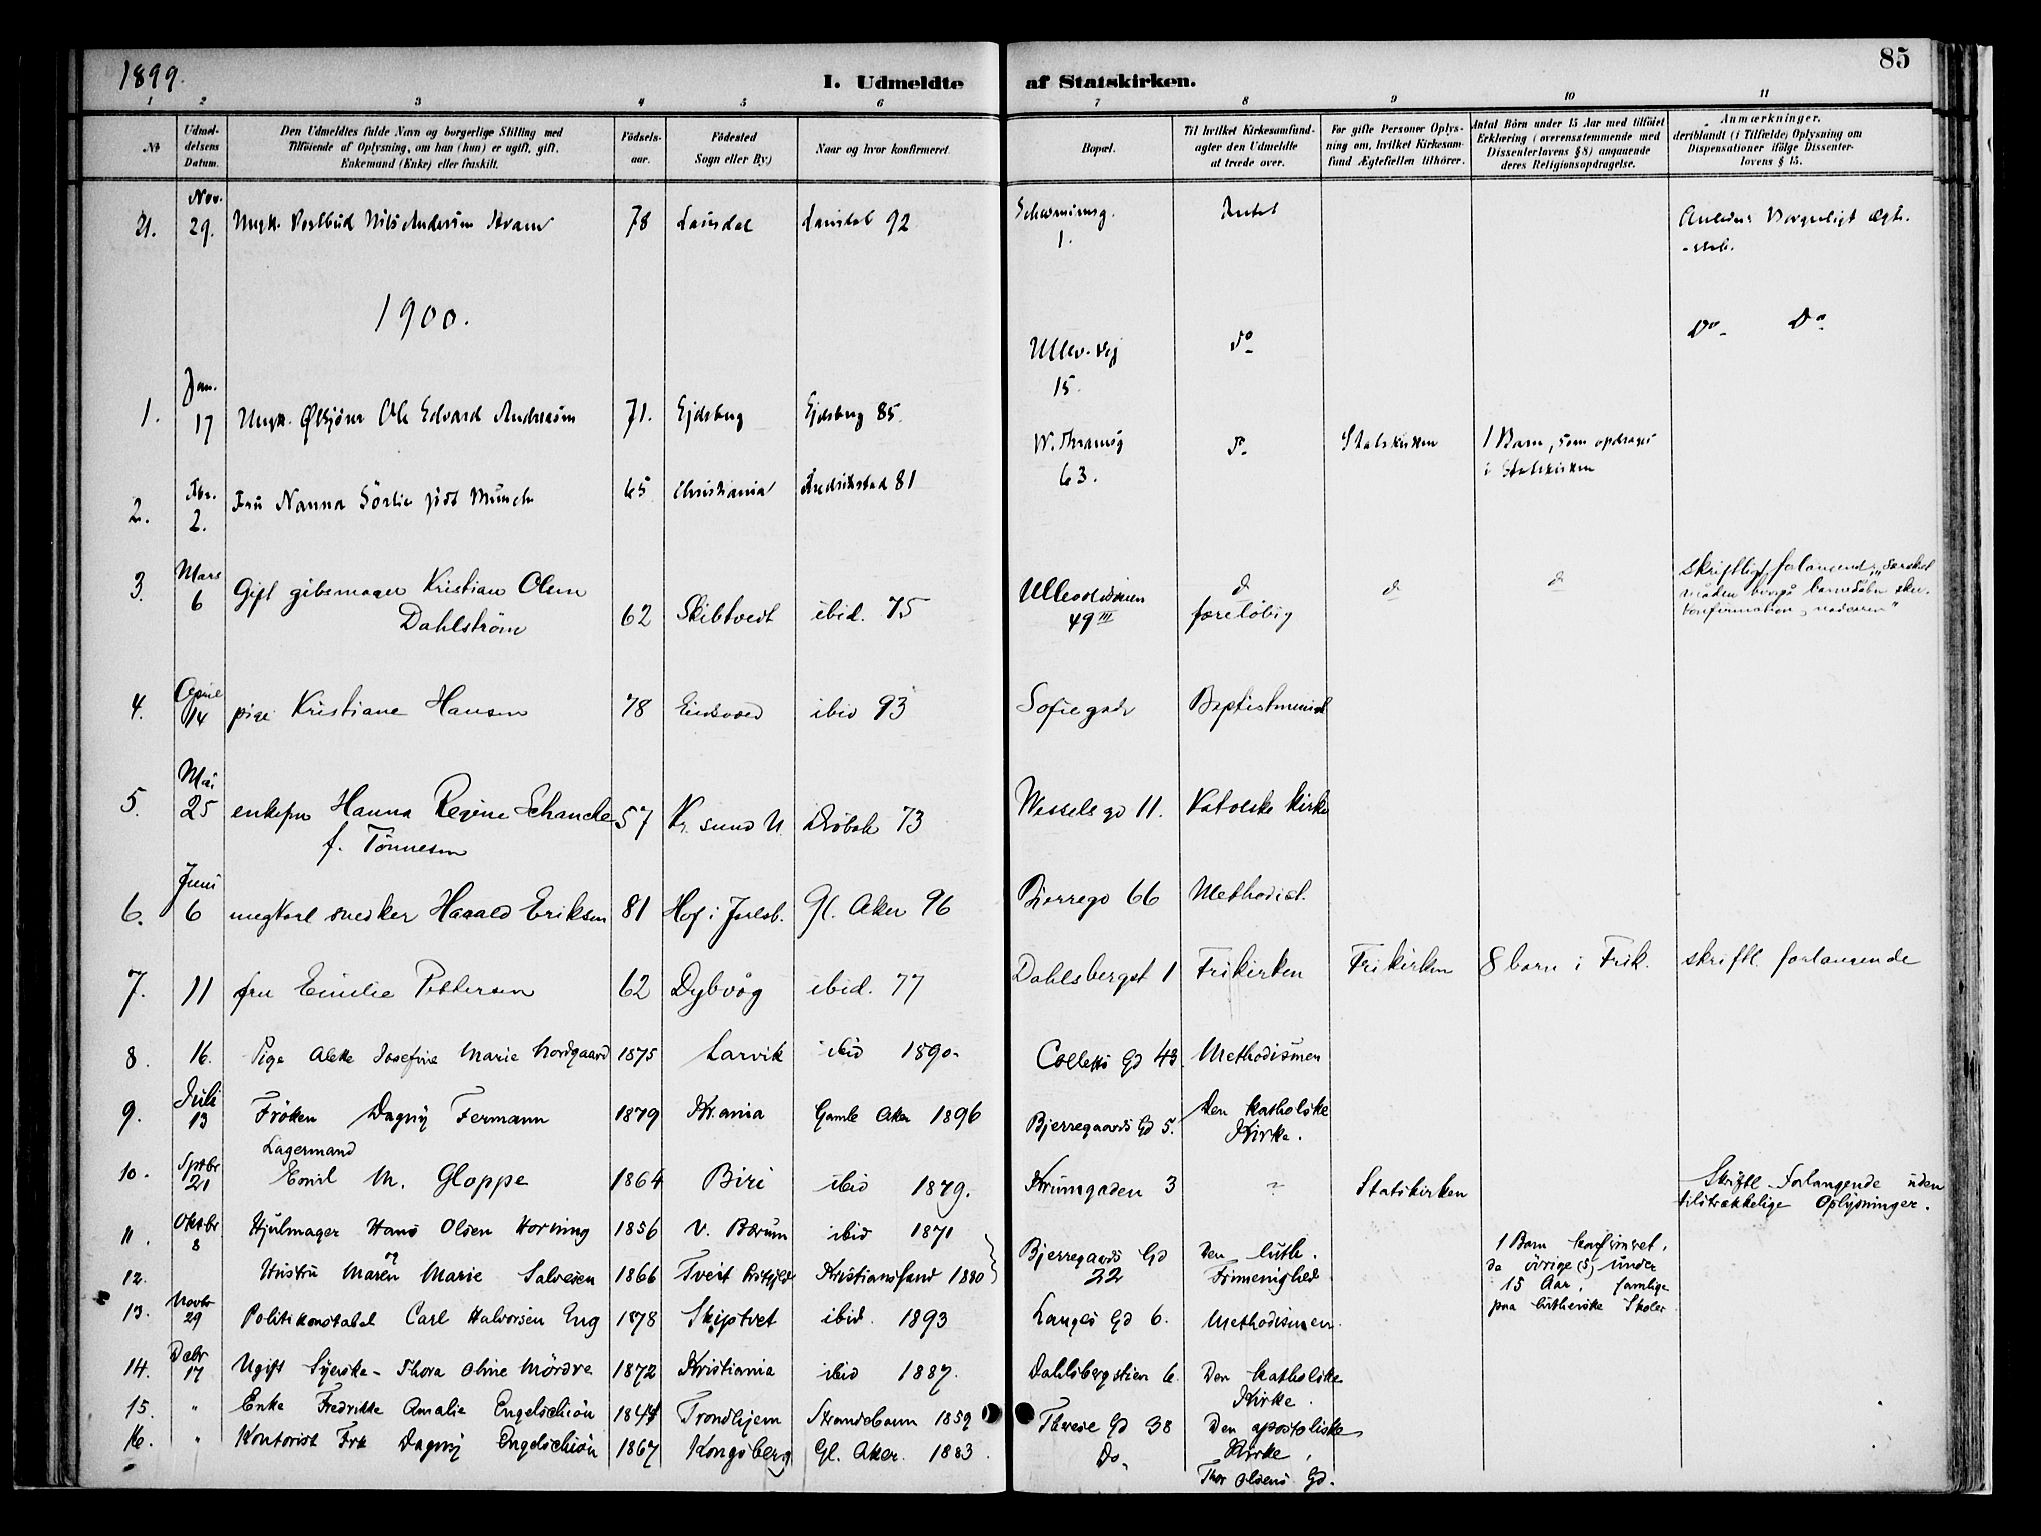 1899.
I. Udmeldte af Statskirken.
85
1 2 3 4 5 6 7 8 9 10 11
No
Udmeldelsens Datum.
Den Udmeldtes fulde Navn og borgerlige Stilling med
Tilføiende af Oplysning, om han (hun) er ugift, gift,
Enkemand (Enke) eller fraskilt.
Fødselsaar.
Fødested
Sogn eller By)
Naar og hvor konfirmeret.
Bopæl.
Til hvilket Kirkesamfund
agter den Udmeldte
at træde over.
For gifte Personer Oplysning om, hvilket Kirkesamfund Ægtefællen tilhører.
Antal Börn under 15 Aar med tilføiet
Erklæring (overensstemmende med
Dissenterlovens § 8) angaaende
deres Religionsopdragelse.
Anmærkninger.
deriblandt (i Tilfælde) Oplysning om
Dispensationer ifølge Dissenterlovens § 15.
Nov.
21. 29. Ungk. Postbud Nils Andersen 78 92 1. Intet Borgerligt Ægte-
-skab.
1900.
Jan.
1. 17 Ungk. Ole Edvard Andresen 71. Ejdsberg Ejdsberg 85. Ullev. Vej 15. Do Do Do
Feb.
2. 2. Fru Nanna Sörlie født Munch 65 Christiania Fredrikstad 81 W. Thranesg 63. Do Statskirken 1 Barn, som opdrages
i Statskirken
Mars
3. 6 Gift gibsmager Kristian Olsen
Dahlström 62 Skibtvedt ibid. 75 Ullevoldsveien 49 III do foreløbig do do skriftligt forlangende,
konfirmation, nadveren"
April
4. 14 pige Kristiane Hansen 78 Eidsvold ibid 93 Sofiegade Baptistmenigh
Mai
5. 25 enkefru Hanna Regine Schancke
f. Tönnesen 57 Kr. sund N. Dröbak 73 Wessels gd 11. Katolske Kirke
Juni
6. 6 ungkarl snedker Harald Eriksen 81 Hof i Jarlsb. Gl. Aker 96 Bjerregd 66 Methodist.
7. 11 fru Emilie Pettersen 62 Dybvåg ibid. 77 Dahlsbergst 1 Frikirken Frikirken 8 barn i Frik. skriftl. forlangende
8. 16. Pige Alette Josefine Marie Nordgaard 1875 Larvik ibid 1890. Colletts Gd 43. Methodismen
Juli
9. 13 Fröken Dagny Fermann 1879 Kr.ania Gamle Aker 1896 Bjerregaards Gd 5. Den katholske
Kirke.
Lagermand
10. Septbr 21 Emil M. Gloppe 1864 Biri ibid 1879. Krumgaden 3 ? Statskirken Skriftl. Forlangende uden
tilstrækkelige Oplysninger.
11. Oktbr 8 Hjulmager Hans Olsen Korning 1856 V. Bærum ibid 1871 Bjerregaards Gd
32 Den luth.
Frimenighed 1 Barn konfirmeret,
de övrige (5) under
15 Aar, samlige
paa lutherske Skoler
og
12. Hustru Maren Marie Salvesen 1866 Tveit Kristiansand 1880
13. Novbr 29 Politikonstabel Carl Halvorsen Eng 1878 Skiptvet ibid. 1893 Langes Gd 6. Methodismen
14. Decbr 17 Ugift Syerske - Thora Oline Mördre 1872 Kristiania ibid 1887. Dahlsbergstien 6. Den katholske
Kirke.
15. " Enke Fredrikke Amalie Engelschiön 1844 Trondhjem Strandebarm 1859 Therese Gd 38 Den apostoliske
Kirke,
16. " Kontorist Frk Dagny Engelschiön 1867 Kongsberg Gl. Aker. 1883. Do. Thor Olsens Gd.